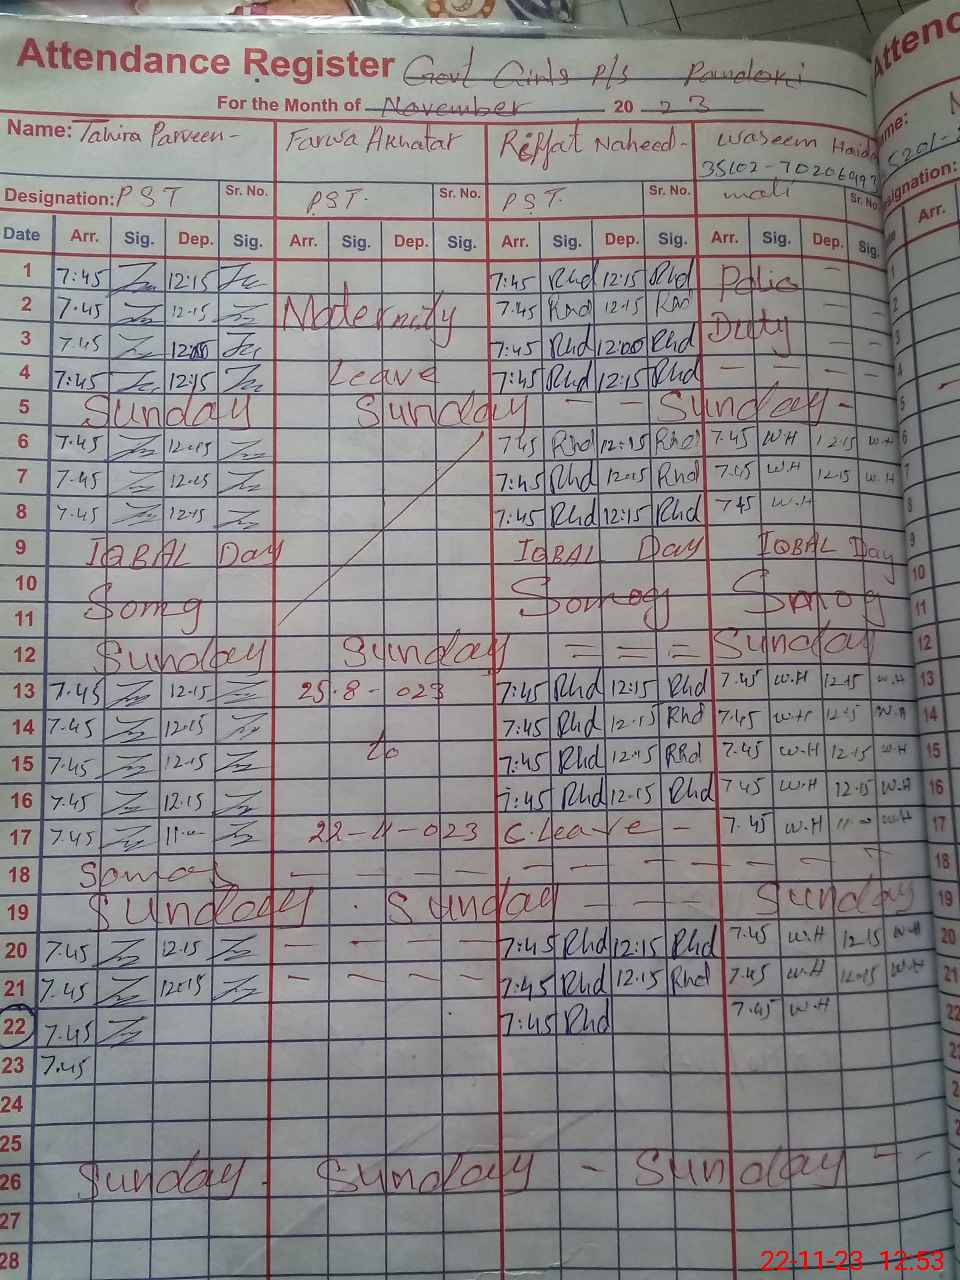 Attendance Register Govt Girls P/S Pandoki
For the Month of November 20 23
Name: Tahira Parveen- Farwa Akhatar Riffat Naheed- Waseem Haid
35102-7020699
Designation: PST Sr. No. PST. Sr. No. PST. Sr. No. mali Sr. No.
Date Arr. Sig. Dep. Sig. Arr. Sig. Dep. Sig. Arr. Sig. Dep. Sig. Arr. Sig. Dep. Sig. Arr.
1 7:45 12:15 7:45 Rhd 12:15 Rhd Polio
2 7.45 12.15 Maternity 7.45 Rhd 12.15 Rhd
3 7.45 7:45 Rhd 12:00 Rhd Duty
4 7:45 12:15 Leave 7:45 Rhd 12:15 Rhd
5 Sunday Sunday - - Sunday -
6 7.45 12.15 7:45 Rhd 12:15 Rhd 7.45 W.H 12.15 W.H
7 7.45 12.15 7:45 Rhd 12:15 Rhd 7.45 W.H 12.15 W.H
8 7.45 12.15 7:45 Rhd 12:15 Rhd 7.45 W.H
9 IQBAL Day IQBAL Day IQBAL Day
10
11 Somg Somog Smog
12 Sunday Sunday = = = Sunday
13 7.45 12.15 25.8-023 7:45 Rhd 12:15 Rhd 7.45 W.H 12.15 W.H
14 7.45 12.15 7:45 Rhd 12.15 Rhd 7.45 W.H 12.15 W.H
15 7.45 12.15 to 7:45 Rhd 12:15 RRd 7.45 W.H 12.15 W.H
16 7.45 12.15 7:45 Rhd 12.15 Rhd 7.45 W.H 12.15 W.H
17 7.45 22-11-023 C.Leave - 7.45 W.H W.H
18
19 Sunday . Sunday - - - Sunday
20 7.45 12.15 - - - - 7:45 Rhd 12:15 Rhd 7.45 W.H 12.15 W.H
21 7.45 12.15 - - - - 7:45 Rhd 12.15 Rhd 7.45 W.H 12.15 W.H
22 7.45 7:45 Rhd 7.45 W.H
23 7.45
24
25
26 Sunday Sunday - Sunday - -
27
28
22-11-23 12:53